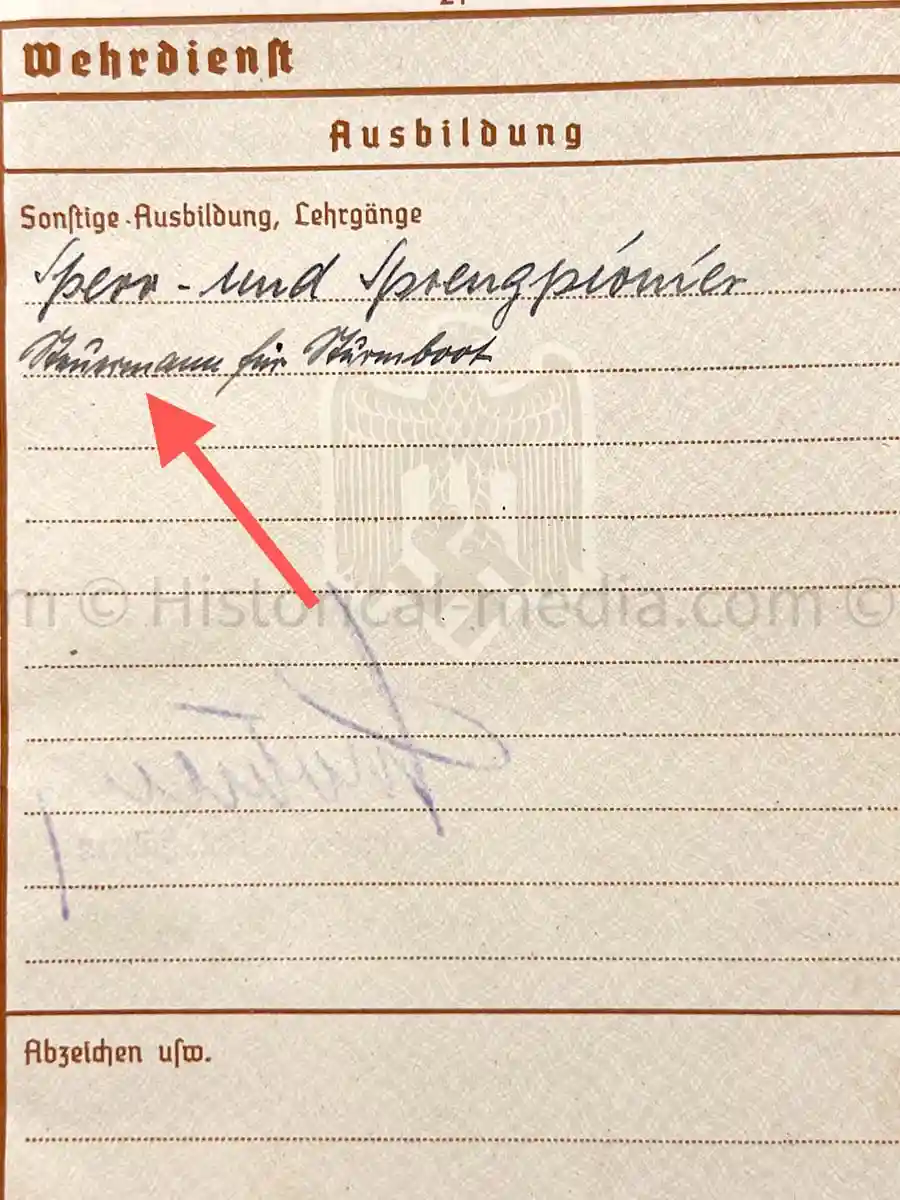 Wehrdienst
Ausbildung
Sonstige Ausbildung, Lehrgänge
Sperr- und Sprengpionier
Steuermann für Sturmboot
m © Historical-media.com ©
Abzeichen usw.